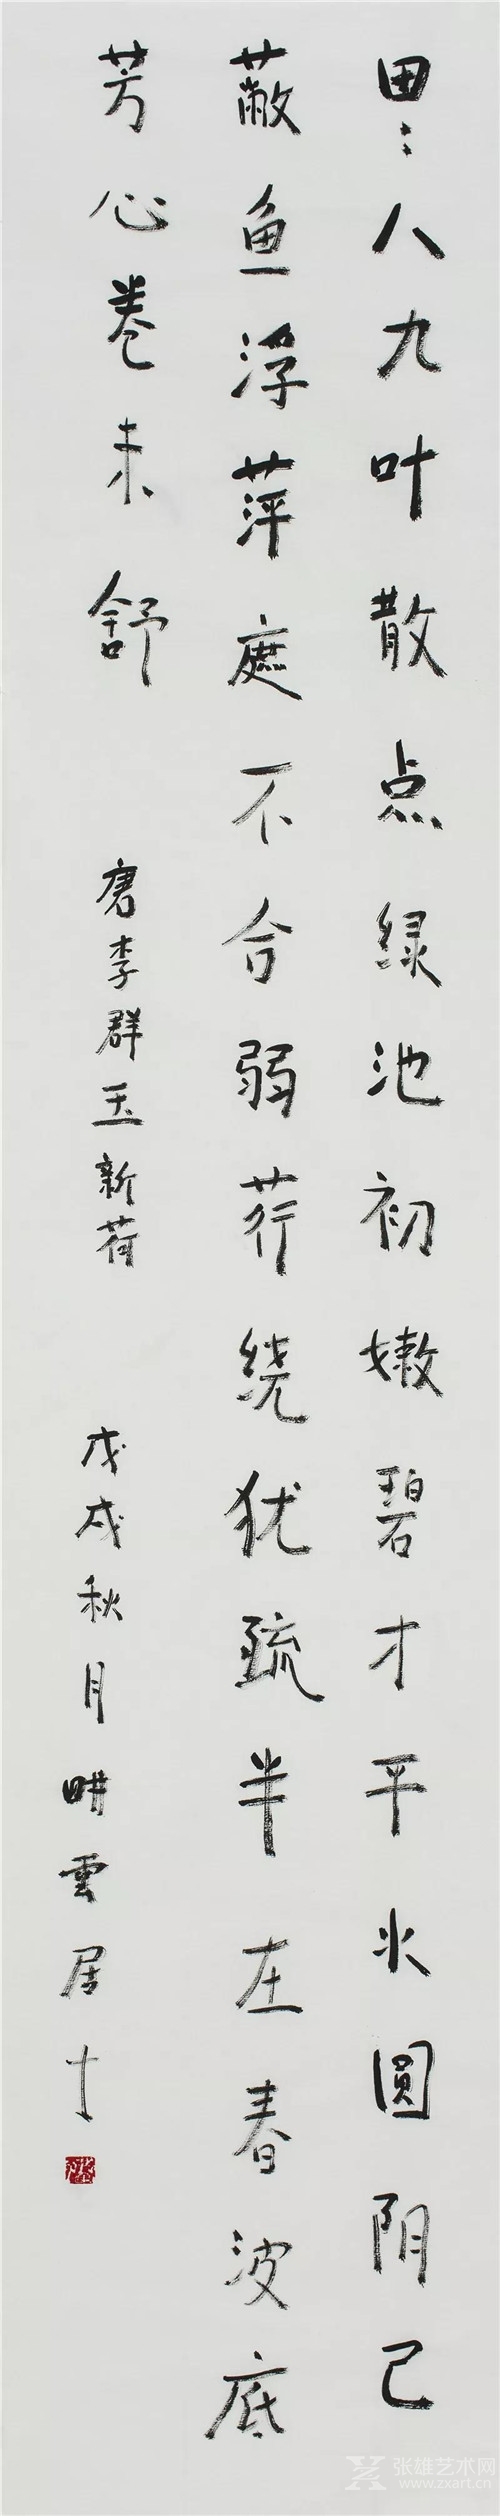 田〻八九叶散点绿池初嫩碧才平水圓阴已
蔽鱼浮萍遮不合弱荇绕犹疏半在春波底
芳心卷未舒 唐李群玉新荷 戊戌秋月畊雲居士
张雄艺术网
www.zxart.cn